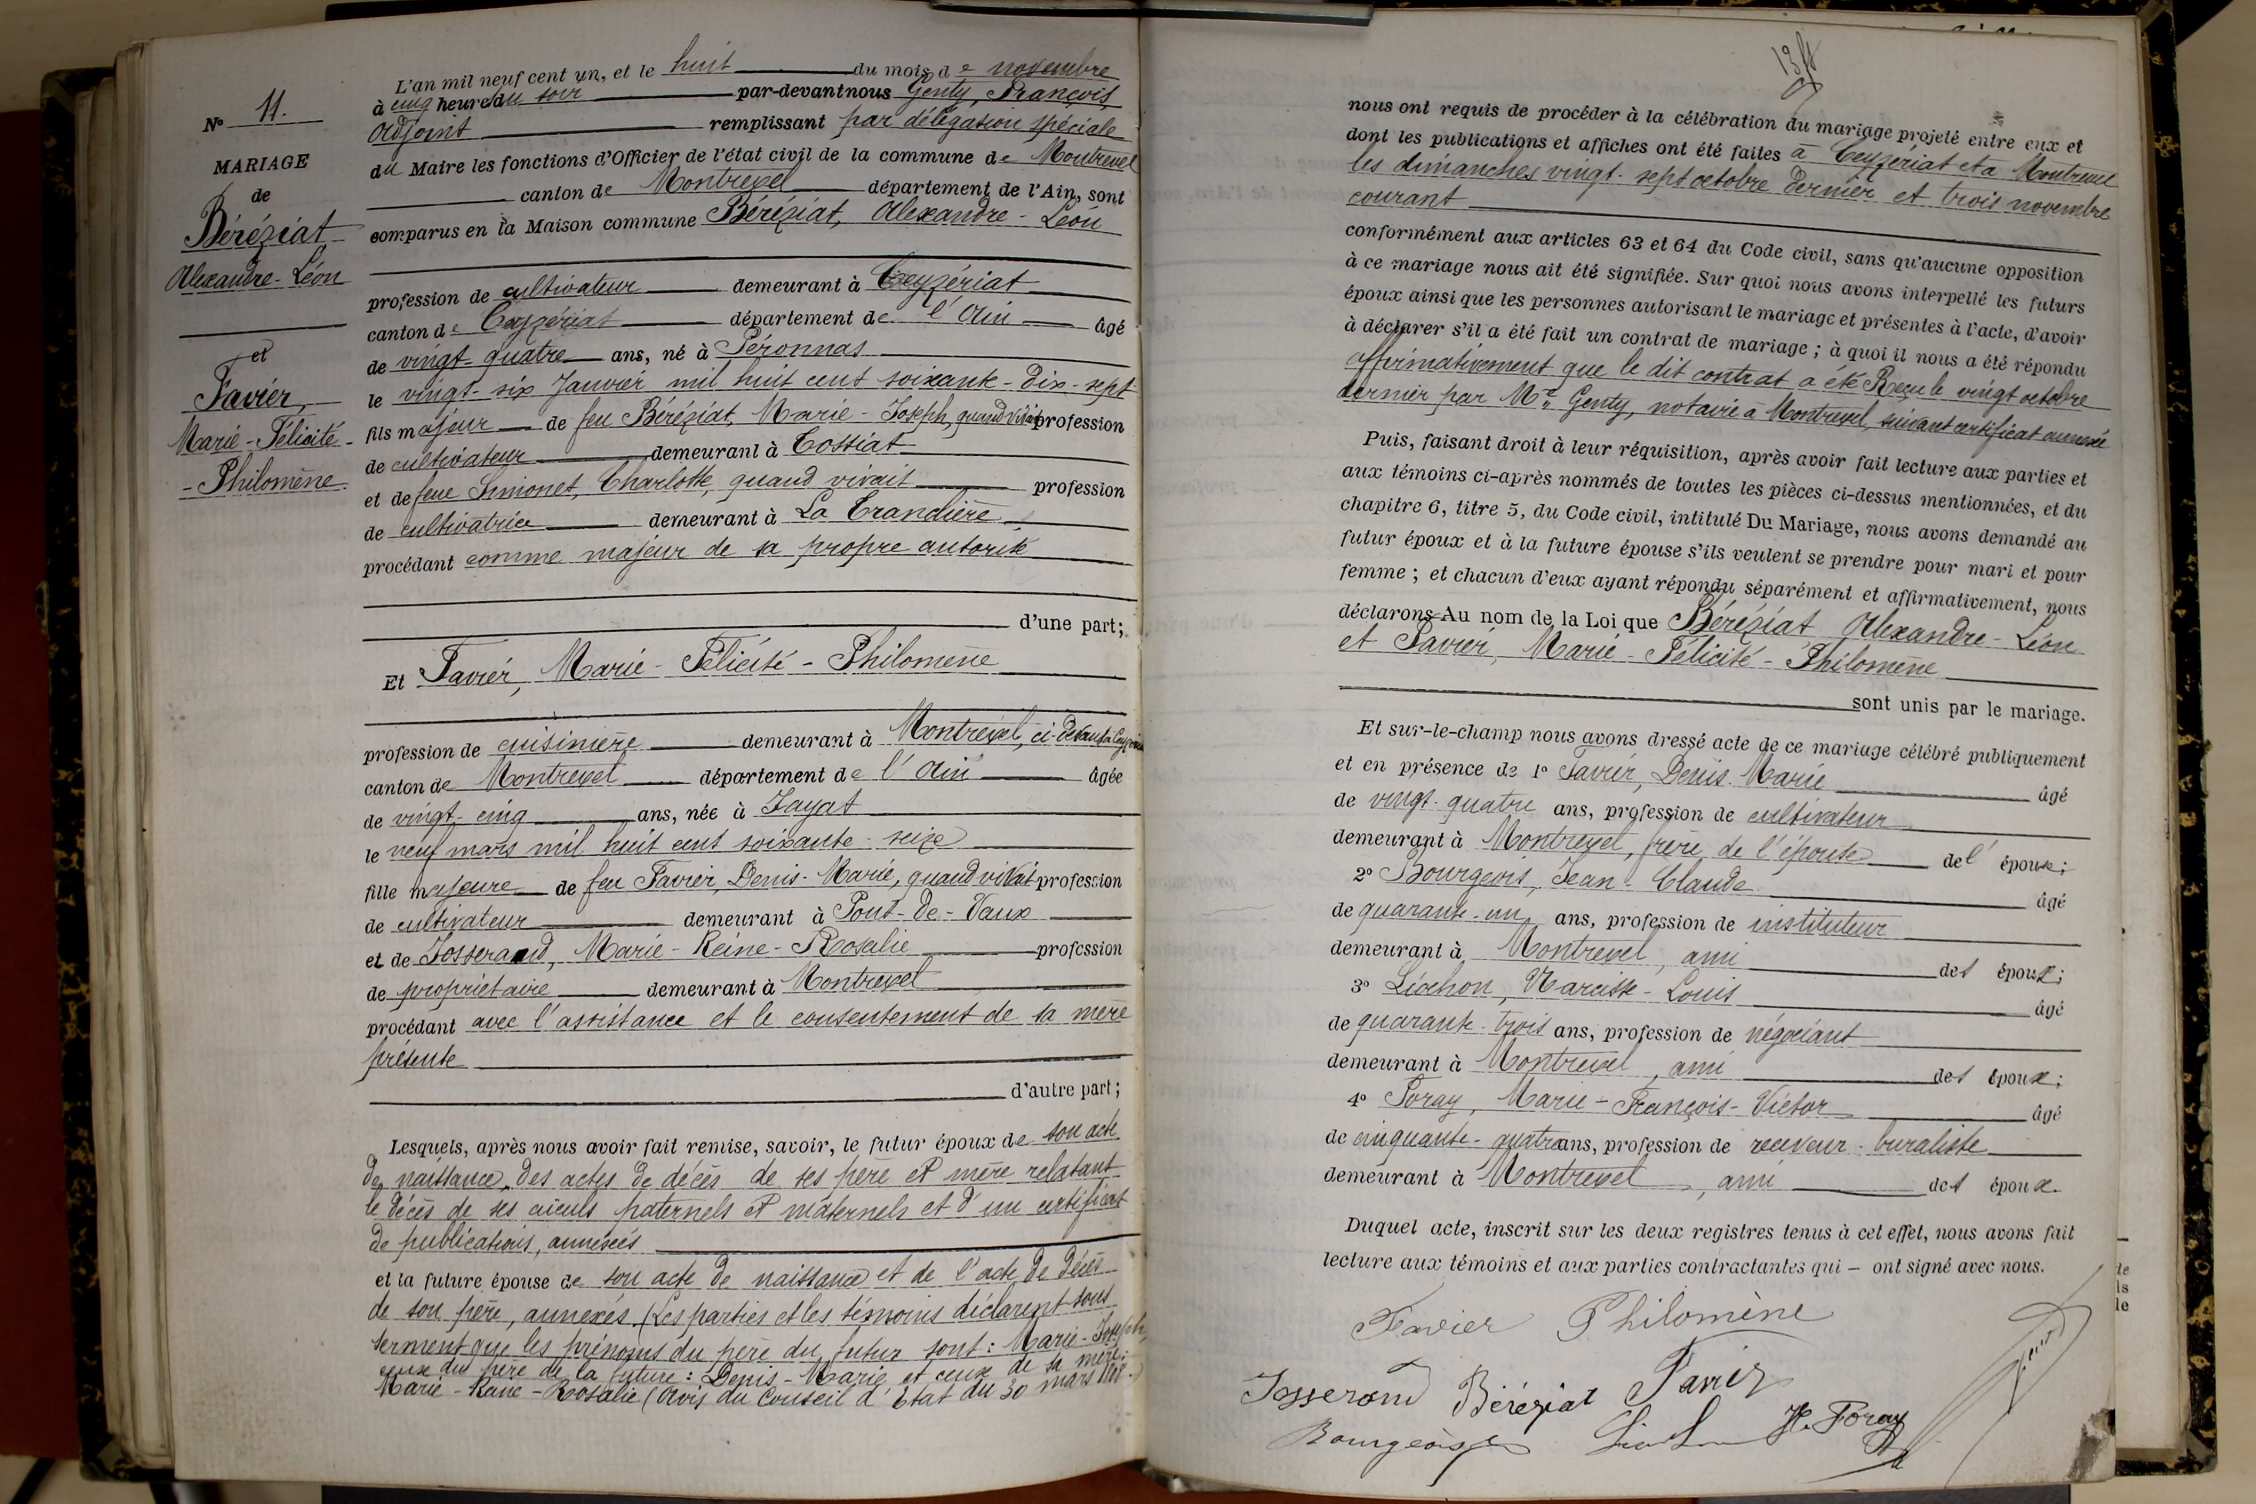 N° 11.
MARIAGE
de
Béréziat
Alexandre-Léon
et
Favier,
Marie-Félicité-
-Philomène
L'an mil neuf cent un, et le huit du mois de novembre
à cinq heures du soir par-devant nous Genty, François,
adjoint remplissant par délégation spéciale
du Maire les fonctions d'Officier de l'état civil de la commune de Montrevel
canton de Montrevel département de l'Ain, sont
comparus en la Maison commune Béréziat, Alexandre-Léon
profession de cultivateur demeurant à Ceyzériat
canton de Ceyzériat département de l'Ain âgé
de vingt-quatre ans, né à Péronnas
le vingt-six Janvier mil huit cent soixante-dix-sept
fils majeur de feu Béréziat, Marie-Joseph, quand vivait profession
de cultivateur demeurant à Tossiat
et de feue Simonet, Charlotte, quand vivait profession
de cultivatrice demeurant à La Tranclière
procédant comme majeur de sa propre autorité
d'une part;
Et Favier, Marie-Félicité-Philomène
profession de cuisinière demeurant à Montrevel, ci-devant à Ceyzériat
canton de Montrevel département de l'Ain âgée
de vingt-cinq ans, née à Jayat
le neuf mars mil huit cent soixante-seize
fille majeure de feu Favier, Denis-Marie, quand vivait profession
de cultivateur demeurant à Pont-de-Vaux
et de Josserand, Marie-Reine-Rosalie profession
de propriétaire demeurant à Montrevel
procédant avec l'assistance et le consentement de sa mère
présente
d'autre part;
Lesquels, après nous avoir fait remise, savoir, le futur époux de son acte
de naissance, des actes de décès de ses père et mère relatant
le décès de ses aïeuls paternels et maternels et d'un certificat
de publications, annexés
et la future épouse de son acte de naissance et de l'acte de décès
de son père, annexés. (Les parties et les témoins déclarent sous
serment que les prénoms du père du futur sont: Marie-Joseph,
ceux du père de la future: Denis-Marie et ceux de sa mère:
Marie-Reine-Rosalie (Avis du Conseil d'Etat du 30 mars 1808.)
nous ont requis de procéder à la célébration du mariage projeté entre eux et
dont les publications et affiches ont été faites à Ceyzériat et à Montrevel
les dimanches vingt-sept octobre dernier et trois novembre
courant
conformément aux articles 63 et 64 du Code civil, sans qu'aucune opposition
à ce mariage nous ait été signifiée. Sur quoi nous avons interpellé les futurs
époux ainsi que les personnes autorisant le mariage et présentes à l'acte, d'avoir
à déclarer s'il a été fait un contrat de mariage; à quoi il nous a été répondu
affirmativement que le dit contrat a été Reçu le vingt octobre
dernier par Me Genty, notaire à Montrevel, suivant certificat annexé
Puis, faisant droit à leur réquisition, après avoir fait lecture aux parties et
aux témoins ci-après nommés de toutes les pièces ci-dessus mentionnées, et du
chapitre 6, titre 5, du Code civil, intitulé Du Mariage, nous avons demandé au
futur époux et à la future épouse s'ils veulent se prendre pour mari et pour
femme; et chacun d'eux ayant répondu séparément et affirmativement, nous
déclarons Au nom de la Loi que Béréziat Alexandre-Léon
et Favier, Marie-Félicité-Philomène
sont unis par le mariage.
Et sur-le-champ nous avons dressé acte de ce mariage célébré publiquement
et en présence de 1° Favier, Denis-Marie âgé
de vingt-quatre ans, profession de cultivateur
demeurant à Montrevel, frère de l'épouse de l'épouse;
2° Bourgeois, Jean-Claude âgé
de quarante-un ans, profession de instituteur
demeurant à Montrevel, ami des époux;
3° Liochon, Narcisse-Louis âgé
de quarante-trois ans, profession de négociant
demeurant à Montrevel, ami des époux;
4° Foray, Marie-François-Victor âgé
de cinquante-quatre ans, profession de receveur-buraliste
demeurant à Montrevel, ami des époux.
Duquel acte, inscrit sur les deux registres tenus à cet effet, nous avons fait
lecture aux témoins et aux parties contractantes qui – ont signé avec nous.
Favier Philomène
Josserand Béréziat Favier
Bourgeois Liochon Foray